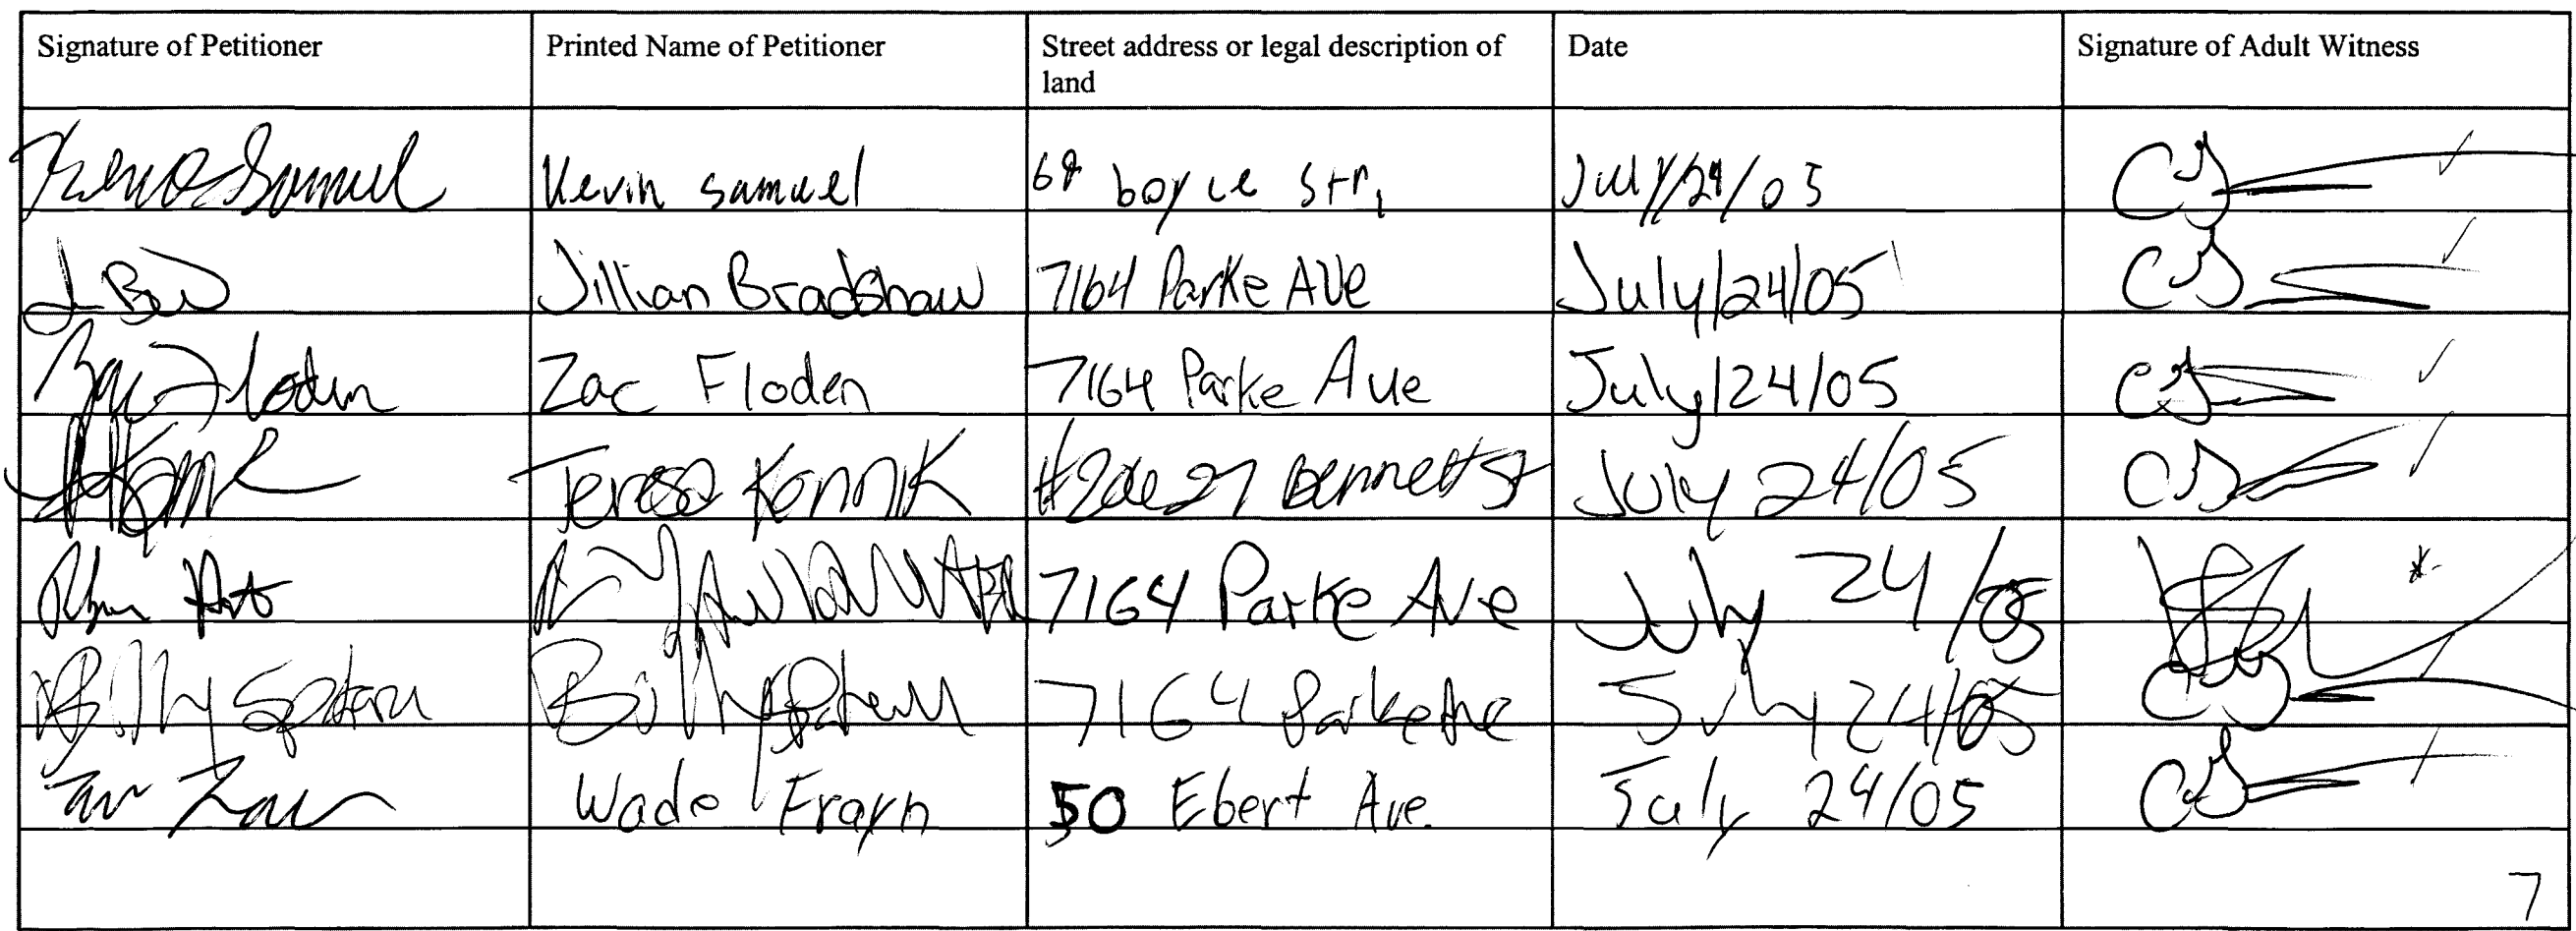 Signature of Petitioner Printed Name of Petitioner Street address or legal description of land Date Signature of Adult Witness
Samuel Kevin samuel boyce str, July/24/05 CJ
Jillian Bradshaw 7164 Parke AVe July/24/05 CJ
Zac Floden Zac Floden 7164 Parke Ave July/24/05 CJ
Teresa Bennett St July 24/05 CJ
7164 Parke Ave July 24/05
Billy Billy 7164 Parke Ave July 24/05 CJ
Wade Frayn 50 Ebert Ave. July 24/05 CJ
7